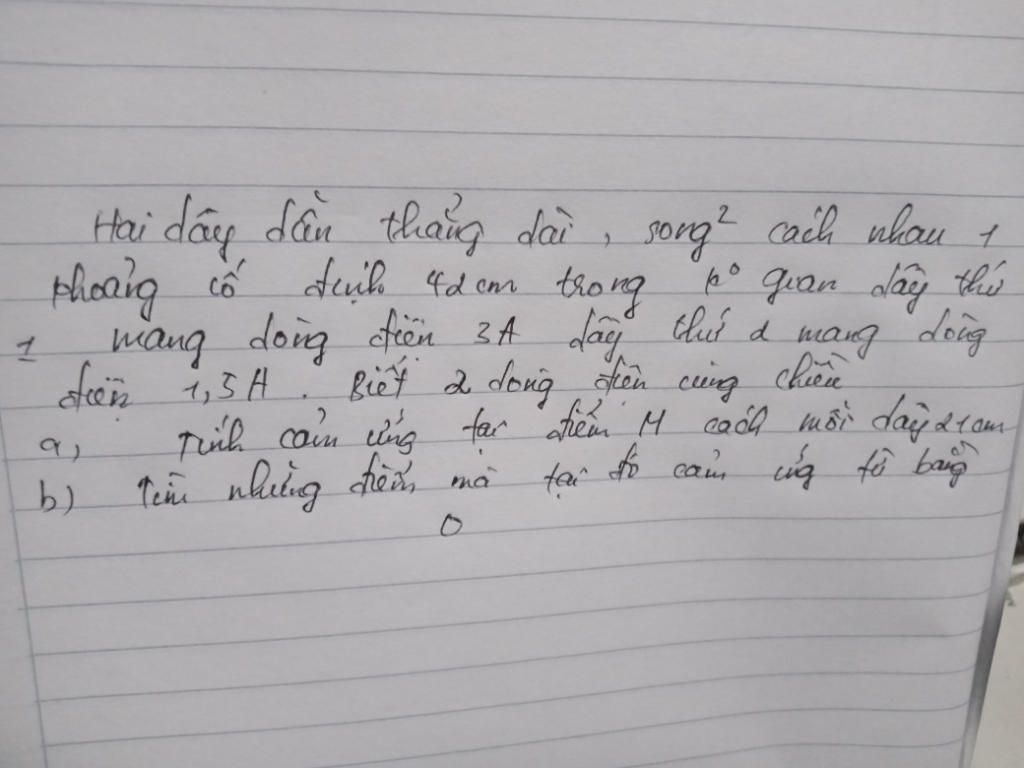 Hai dây dẫn thẳng dài, song² cách nhau 1
khoảng cố định 42cm trong k° gian dây thứ
1 mang dòng điện 3A dây thứ 2 mang dòng
điện 1,5A. Biết 2 dòng điện cùng chiều
a, Tính cảm ứng tại điểm M cách mỗi dây 21cm
b) Tìm những điểm mà tại đó cảm ứng từ bằng
0